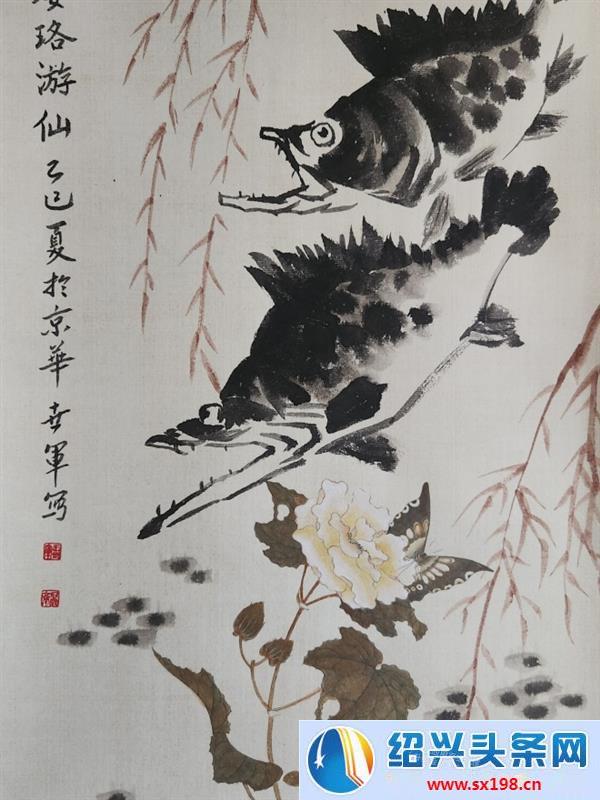 珞游仙 乙巳夏於京華 軍写
绍兴头条网
www.sx198.cn